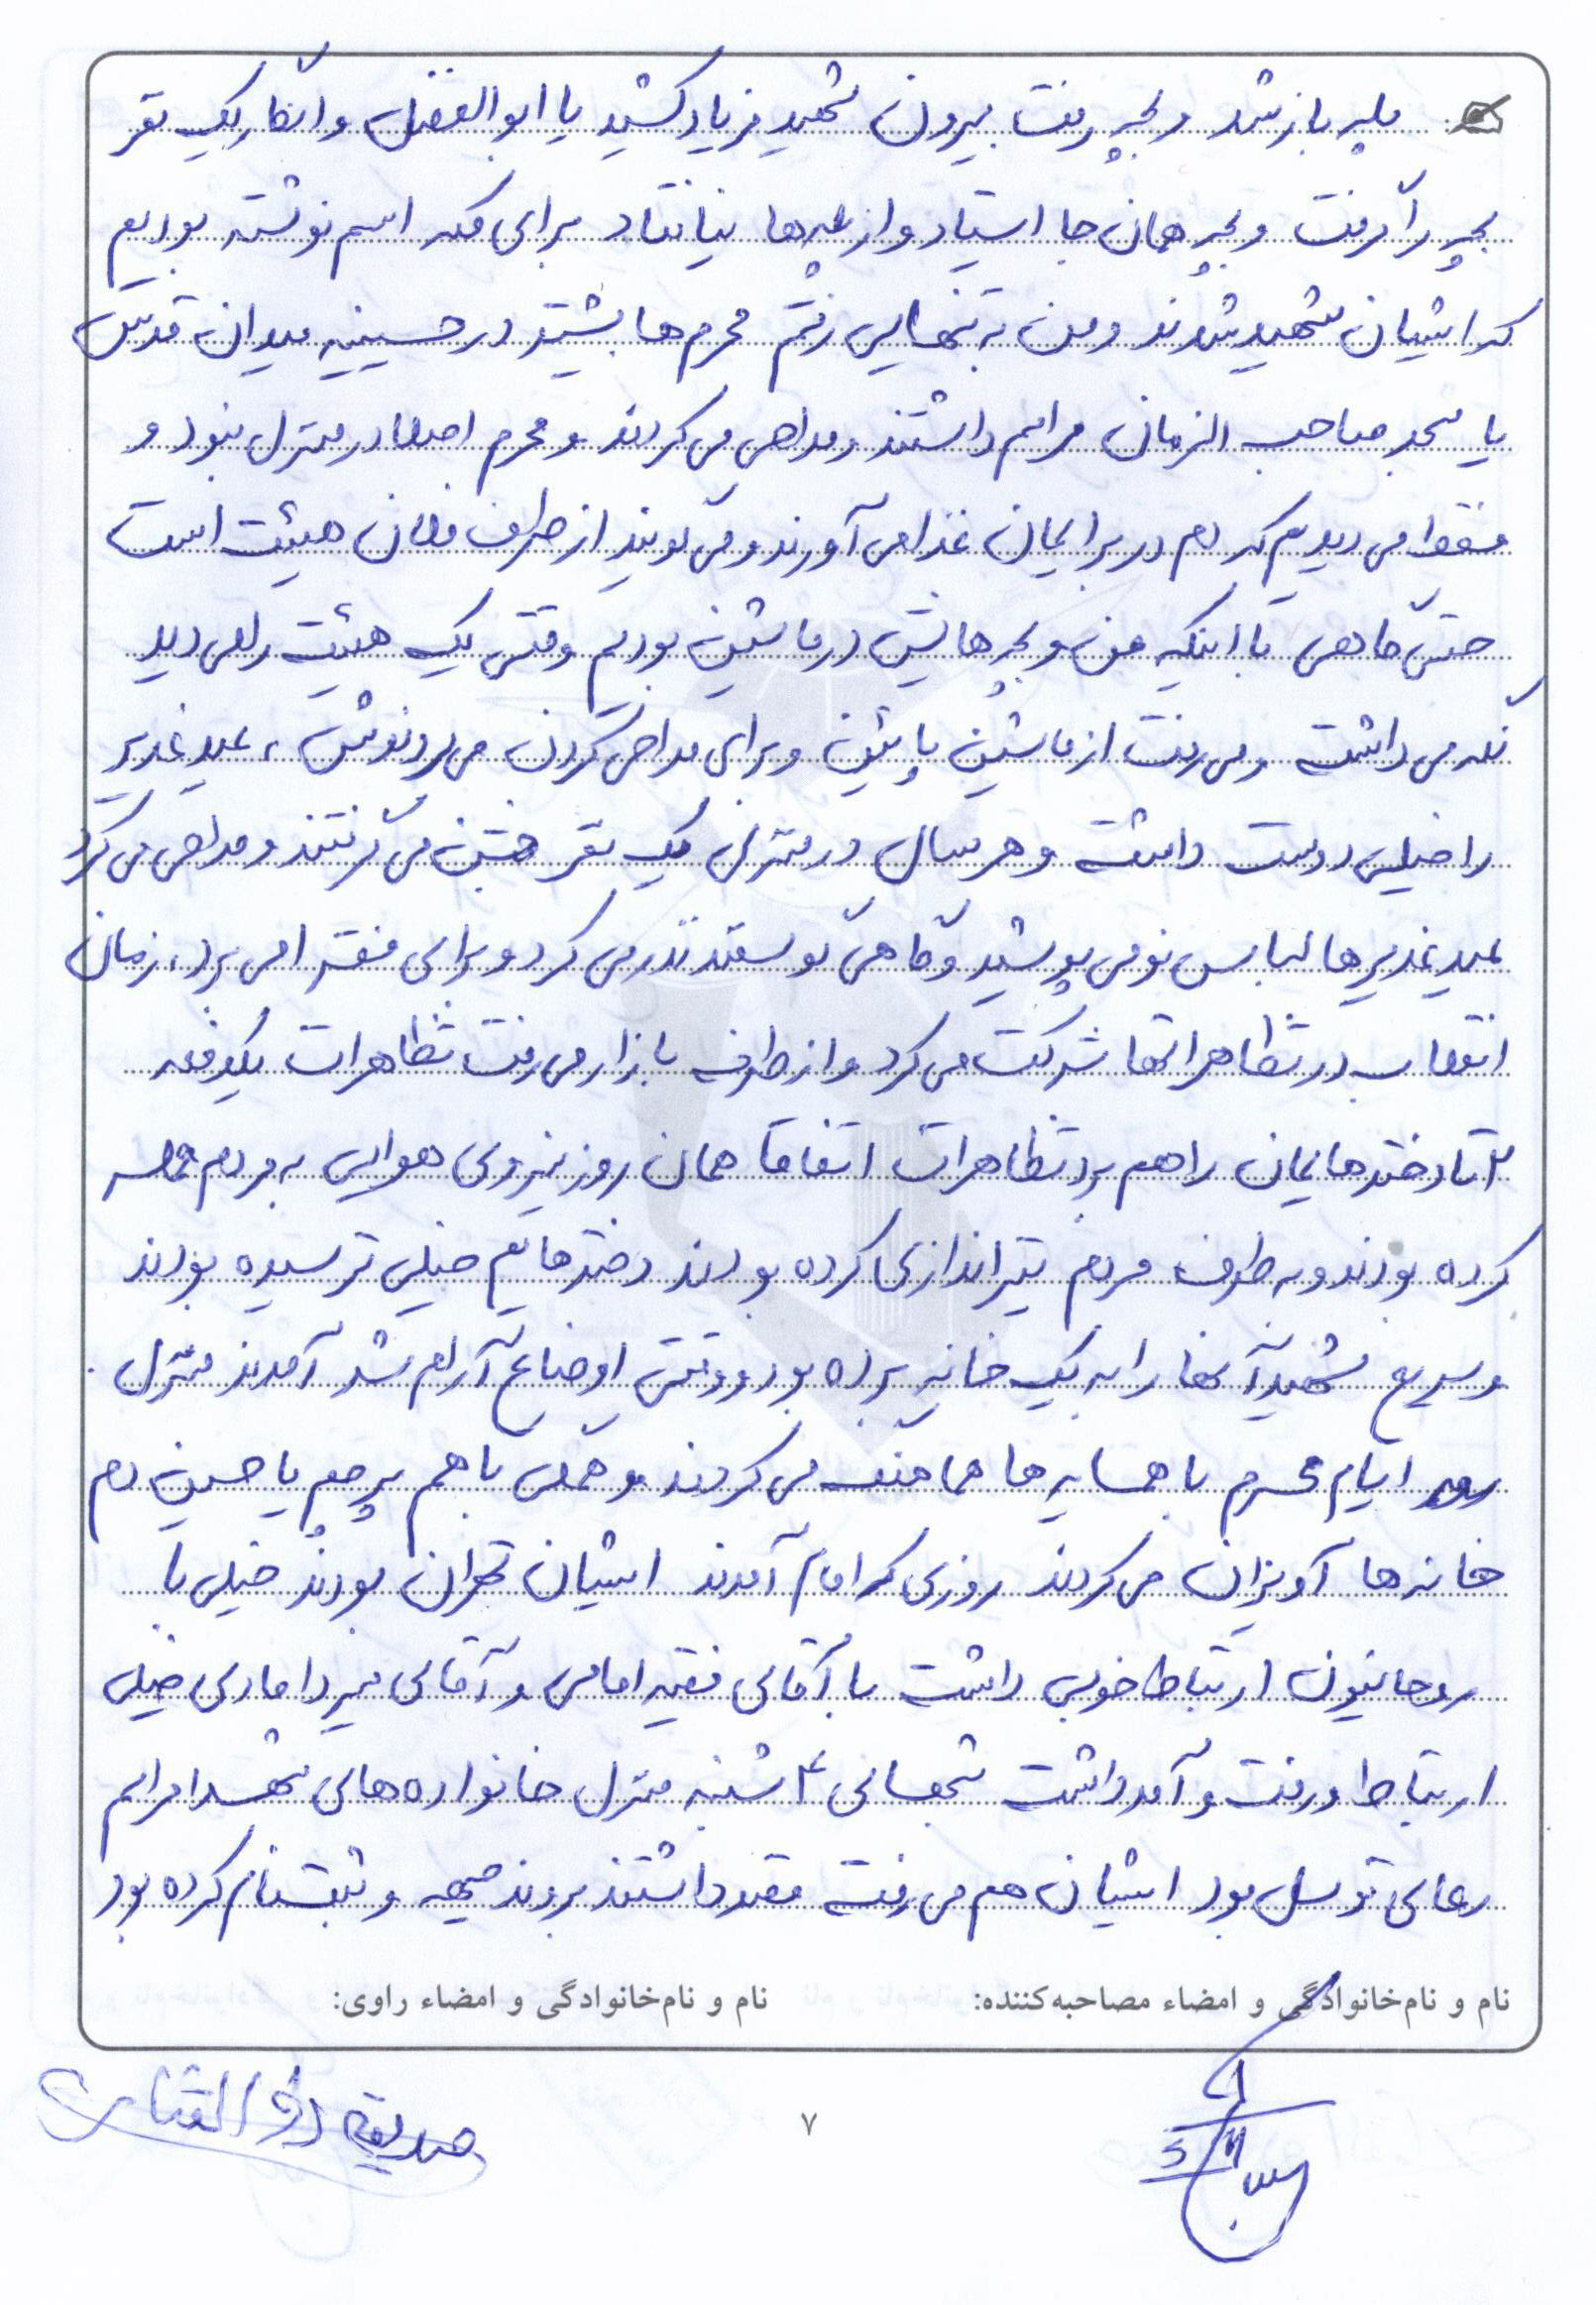 پله باز شد و بچه رفت بیرون شهید فریاد کشید یا ابوالفضل و انگار یک نفر
بچه را گرفت و بچه همان جا ایستاد و از پله‌ها نیافتاد برای مکه اسم نوشته بودیم
که ایشان شهید شدند و من به تنهایی رفتم محرم‌ها بیشتر در حسینیه میدان قدس
یا مسجد صاحب الزمان مراسم داشتند و مداحی می‌کردند و محرم اصلا در منزل نبود و
فقط می‌دیدیم که دم در برایمان غذا می‌آورند و می‌گویند از طرف فلان هیئت است
حتی گاهی با اینکه من و بچه‌هایش در ماشین بودیم وقتی یک هیئت را می‌دید
نگه می‌داشت و می‌رفت از ماشین پایین و برای مداحی کردن ، عید غدیر
را خیلی دوست داشت و هر سال در منزل یک نفر جشن می‌گرفتند و مداحی می‌کرد
عید غدیرها لباس نو می‌پوشید و گاهی گوسفند نذر می‌کرد و برای فقرا می‌برد، زمان
انقلاب در تظاهراتها شرکت می‌کرد و از طرف بازار می‌رفت تظاهرات یکدفعه
۲ تا دخترهایمان را هم برد تظاهرات اتفاقا همان روز نیروی هوایی به مردم حمله
کرده بودند و به طرف مردم تیراندازی کرده بودند دخترهایم خیلی ترسیده بودند
و سریع شهید آنها را به یک خانه برده بود و وقتی اوضاع آرام شد آمدند منزل .
ایام محرم با همسایه‌ها هماهنگ می‌کردند و همگی با هم پرچم یا حسین دم
خانه‌ها آویزان می‌کردند روزی که امام آمدند ایشان تهران بودند خیلی با
روحانیون ارتباط خوبی داشت با آقای فقیه امامی و آقای میردامادی خیلی
ارتباط و رفت و آمد داشت شبهای ۴ شنبه منزل خانواده‌های شهدا مراسم
دعای توسل بود ایشان هم می‌رفت قصد داشتند بروند جبهه و ثبت نام کرده بود
نام و نام‌خانوادگی و امضاء مصاحبه‌کننده: نام و نام‌خانوادگی و امضاء راوی:
صدیقه
۷